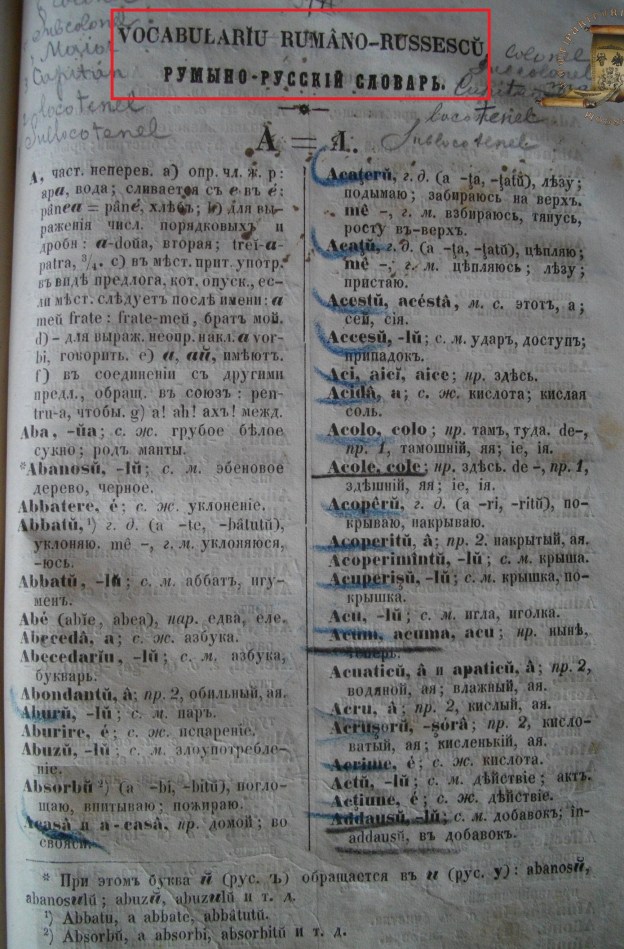 Subcolonel
Maior
Capitan
locotenel
Sublocotenel
colonel
locotenel
Sublocotenel
VOCABULARĬU RUMÂNO-RUSSESCŬ
РУМЫНО-РУССКІЙ СЛОВАРЬ.
A = A.
A, част. неперев. a) опр. чл. ж. р:
apa, вода; сливается съ e въ é:
pânea = pâné, хлѣбъ; b) для вы-
раженія числ. порядковыхъ и
дроби: a-doŭa, вторая; treĭ-a-
patra, ³/₄. c) въ мѣст. прит. употр.
въ видѣ предлога, кот. опуск., ес-
ли мѣст. слѣдуетъ послѣ имени: a
meŭ frate: frate-meŭ, братъ мой.
d) - для выраж. неопр. накл. a vor-
bi, говорить. e) a, aй, имѣютъ.
f) въ соединеніи съ другими
предл., обращ. въ союзъ: pen-
tru-a, чтобы. g) a! ah! ахъ! межд.
Aba, -ŭa; с. ж. грубое бѣлое
сукно; родъ манты.
*Abanosŭ, -lŭ; с. м. эбеновое
дерево, черное.
Abbatere, é; с. ж. уклоненіе.
Abbatŭ, ¹) г. д. (a -te, -bătutŭ),
уклоняю. mê -, г. м. уклоняюся,
-юсь.
Abbatŭ, -lŭ; с. м. аббатъ, игу-
менъ.
Abé (abĭe, abea), нар. едва, еле.
Abecedâ, a; с. ж. азбука.
Abecedarĭu, -lŭ; с. м. азбука,
букварь.
Abondantŭ, â; пр. 2, обильный, ая.
Aburŭ, -lŭ; с. м. паръ.
Aburire, é; с. ж. испареніе.
Abuzŭ, -lŭ; с. м. злоупотребле-
ніе.
Absorbŭ ²) (a -bi, -bitŭ), погло-
щаю, впитываю; пожираю.
Acasâ и a-casâ, пр. домой; во
свояси.
Acaţerŭ, г. д. (a -ţa, -ţatŭ), лѣзу;
подымаю; забираюсь на верхъ.
mê -, г. м. взбираюсь, тянусь,
росту въ-верхъ.
Acaţŭ, г. д. (a -ţa, -ţatŭ), цѣпляю;
mê -, г. м. цѣпляюсь; лѣзу;
пристаю.
Acestŭ, acéstâ, м. с. этотъ, а;
сей, сія.
Accesŭ, -lŭ; с. м. ударъ, доступъ;
припадокъ.
Aci, aicĭ, aice; пр. здѣсь.
Acidâ, a; с. ж. кислота; кислая
соль.
Acolo, colo; пр. тамъ, туда. de-,
пр. 1, тамошній, яя; іе, ія.
Acole, cole; пр. здѣсь. de -, пр. 1,
здѣшній, яя; іе, ія.
Acopêrŭ, г. д. (a -ri, -ritŭ), по-
крываю, накрываю.
Acoperitŭ, â; пр. 2. накрытый, ая.
Acoperimîntŭ, -lŭ; с. м. крыша.
Acuperişŭ, -lŭ; с. м. крышка, по-
крышка.
Acu, -lŭ; с. м. игла, иголка.
Acum, acuma, acu; пр. нынѣ,
теперь.
Acuaticŭ, â и apaticŭ, â; пр. 2,
водяной, ая; влажный, ая.
Acru, â; пр. 2, кислый, ая.
Acruşorŭ, -şórâ; пр. 2, кисло-
ватый, ая; кисленькій, ая.
Acrime, é; с. ж. кислота.
Actŭ, -lŭ; с. м. дѣйствіе; актъ.
Acţiune, é; с. ж. дѣйствіе.
Addausŭ, -lŭ; с. м. добавокъ; în-
addausŭ, въ добавокъ.
* При этомъ буква й (рус. ъ) обращается въ и (рус. у): abanosй,
abanosulŭ; abuzй, abuzulŭ и т. д.
¹) Abbatu, a abbate, abbătutŭ.
²) Absorbŭ, a absorbi, absorbitŭ и т. д.